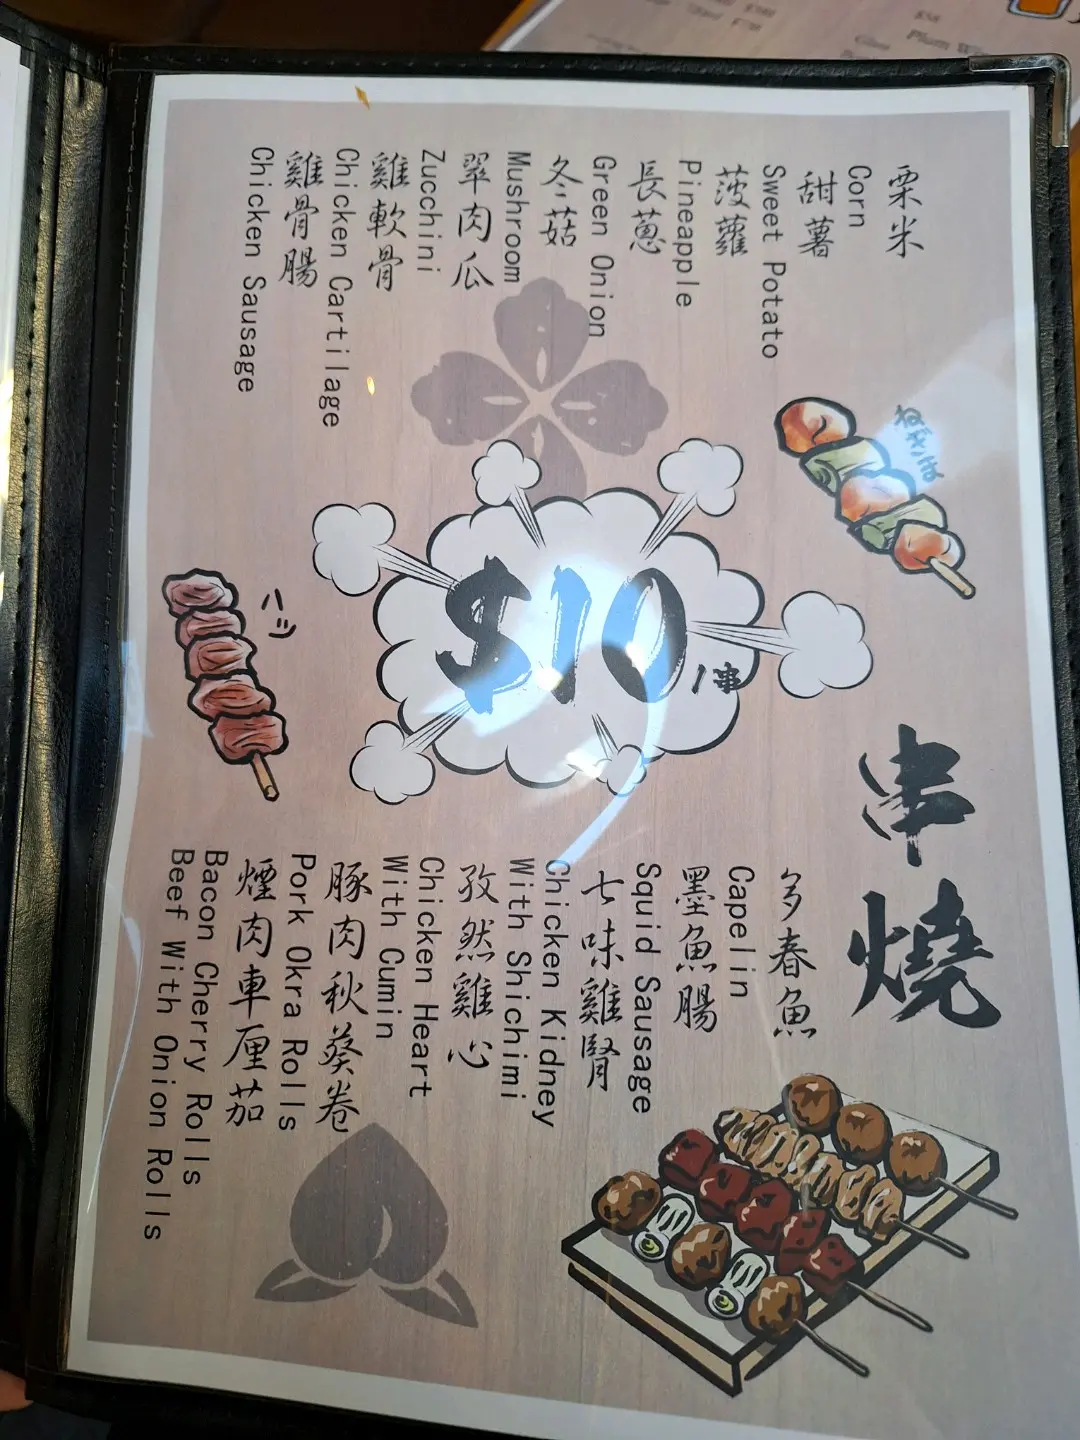 串燒
栗米
Corn
甜薯
Sweet Potato
菠蘿
Pineapple
長蔥
Green Onion
冬菇
Mushroom
翠肉瓜
Zucchini
雞軟骨
Chicken Cartilage
雞骨腸
Chicken Sausage
ねぎま
$10/串
ハシ
多春魚
Capelin
墨魚腸
Squid Sausage
七味雞腎
Chicken Kidney
With Shichimi
孜然雞心
Chicken Heart
With Cumin
豚肉秋葵卷
Pork Okra Rolls
煙肉車厘茄
Bacon Cherry Rolls
Beef With Onion Rolls
$58